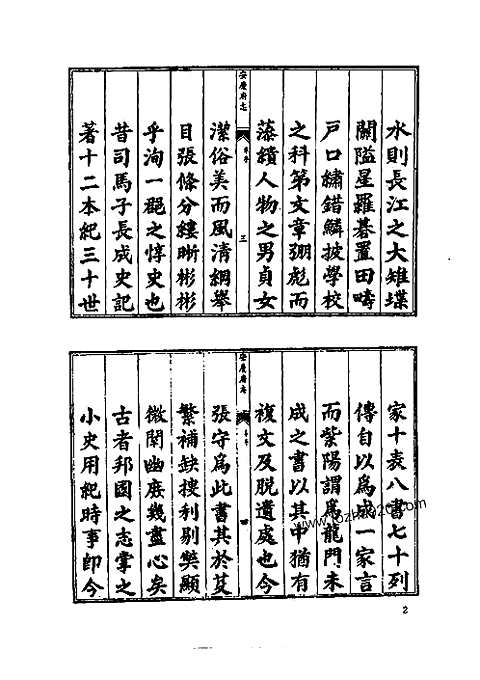 水則長江之大雉堞
關隘星羅碁置田疇
戶口繡錯鱗披學校
之科第文章弸彪而
藻繢人物之男貞女
安慶府志
三
潔俗美而風清綱舉
目張條分縷晰彬彬
乎洵一郡之惇史也
昔司馬子長成史記
著十二本紀三十世
家十表八書七十列
傳自以爲成一家言
而紫陽謂爲龍門未
成之書以其中猶有
複文及脫遺處也今
安慶府志
四
張守爲此書其於芟
繁補缺搜利別弊顯
微闡幽庶幾盡心矣
古者邦國之志掌之
小史用紀時事卽今
2